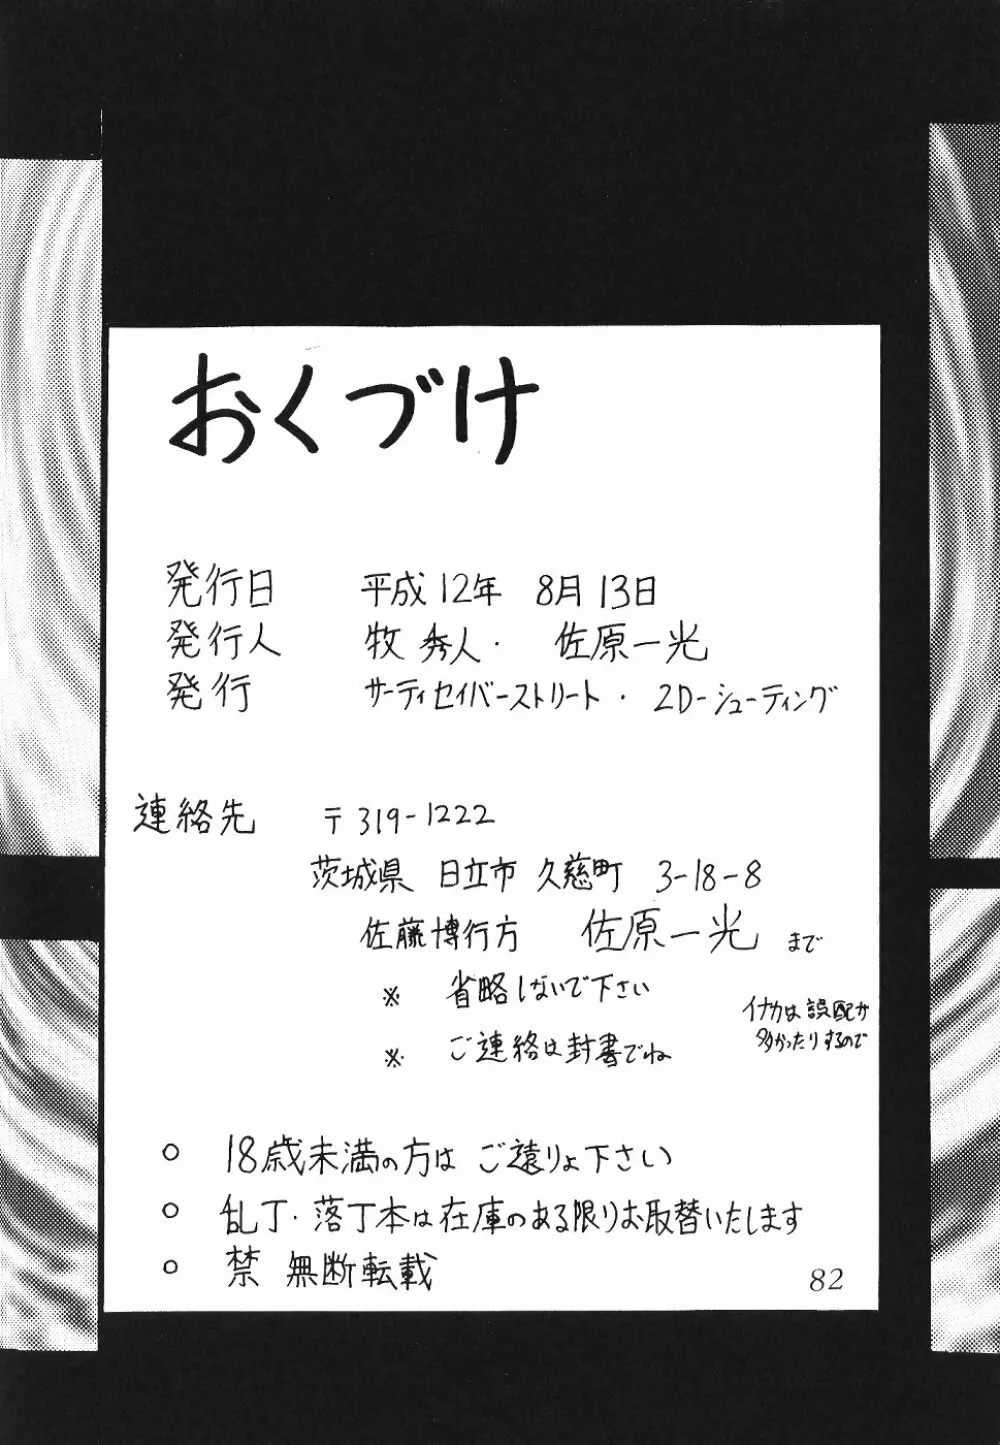 おくづけ
発行日 平成12年 8月13日
発行人 牧 秀人・ 佐原一光
発行 サーティセイバーストリート・2D-シューティング
連絡先 〒319-1222
茨城県 日立市 久慈町 3-18-8
佐藤博行方 佐原一光 まで
※ 省略しないで下さい
イナカは誤配が
多かったりするので
※ ご連絡は封書でね
○ 18歳未満の方は ご遠りょ下さい
○ 乱丁・落丁本は在庫のある限りお取替いたします
○ 禁 無断転載
82